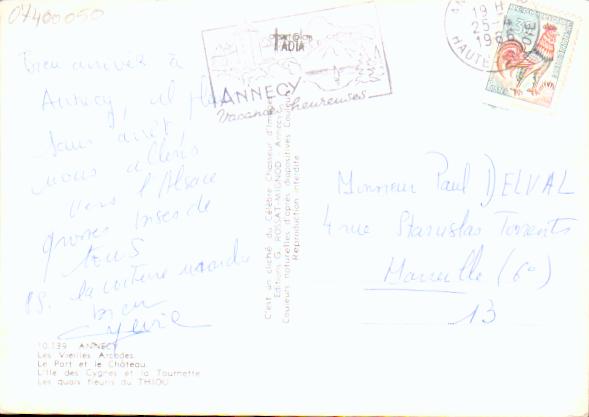 07400050
Bien arrivés à
Annecy, il pleut
sans arrêt,
nous allons
vers l'Alsace
grosses bises de
tous
PS. la voiture marche
bien
10.139 ANNECY
Les Vieilles Arcades.
Le Port et le Château.
L'Ile des Cygnes et la Tournette
Les quais fleuris du THIOU
ANNECY
Vacances heureuses
C'est un cliché du Célèbre Chasseur d'Images
Editions G. ROSSAT-MIGNOD Annecy
Couleurs naturelles d'après diapositives Couleurs
Reproduction interdite
19 H
25-
HAUTE
Monsieur Paul DELVAL
4 rue Stanislas Torrents
Marseille (6e)
13